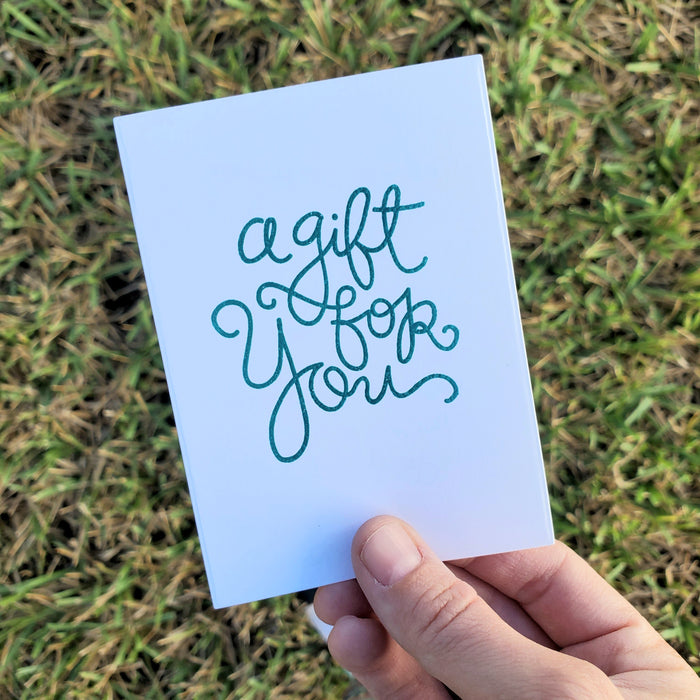 a gift
for
You